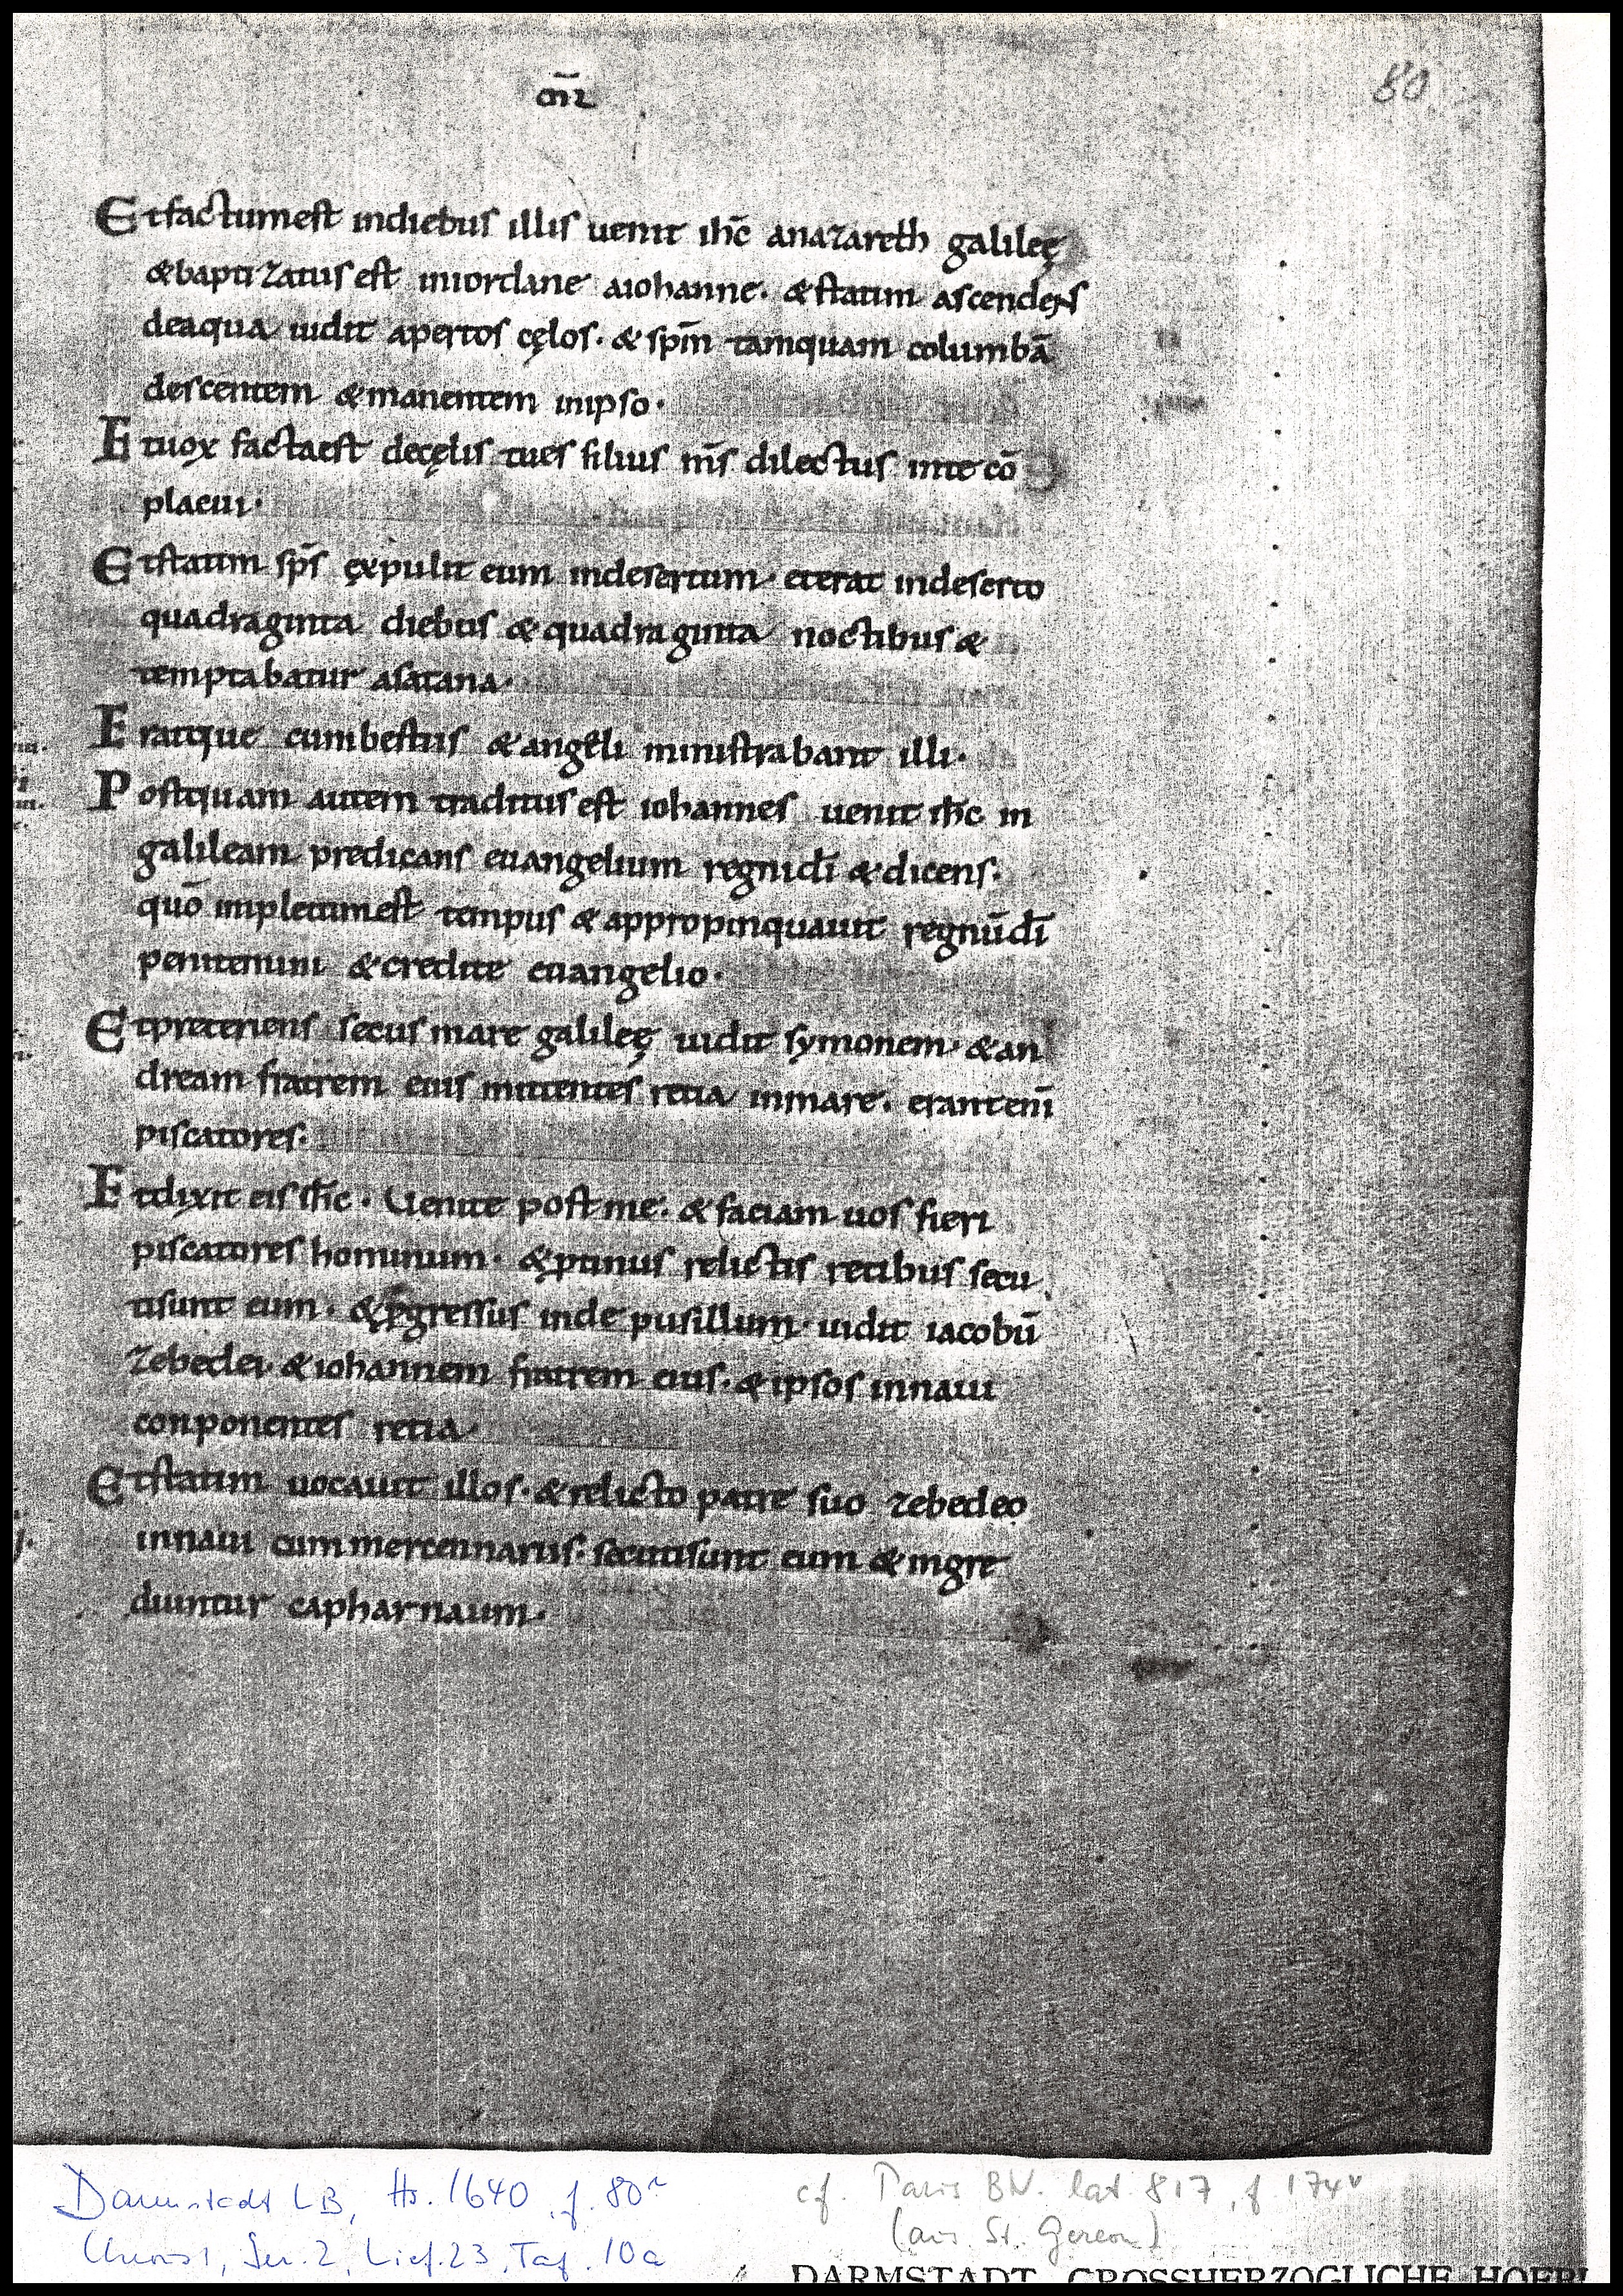 80
Etfactumest indiebus illis uenit ihc̄ anazareth galileę
&baptizatus est iniordane aiohanne. &statim ascendens
deaqua uidit apertos cęlos. & spm̄ tamquam columbā
descentem &manentem inipso.
Etuox factaest decęlis tues filius ms̄ dilectus inte cō
placui.
Etstatim sps̄ expulit eum indesertum. eterat indeserto
quadraginta diebus & quadraginta noctibus &
temptabatur asatana.
Eratque cumbestiis &angeli ministrabant illi.
Postquam autem traditus est iohannes uenit ihc̄ in
galileam predicans euangelium regnidī &dicens.
quō impletumest tempus & appropinquauit regnūdī
penitemini &credite euangelio.
Etpreteriens secus mare galileę uidit symonem. &an
dream fratrem eius mittentes retia inmare. erantenī
piscatores.
Etdixit eis ihc̄. Uenite post me. & faciam uos fieri
piscatores hominum. &ꝓtinus relictis retibus secu
tisunt eum. &ꝓgressus inde pusillum. uidit iacobū
zebedei. &iohannem fratrem eius. &ipsos innaui
conponentes retia.
Etstatim uocauit illos. &relicto patre suo zebedeo
innaui cum mercennariis. secutisunt eum &ingre
diuntur capharnaum.
Darmstadt LB, Hs. 1640, f. 80r
Chroust, Ser. 2, Lief. 23, Taf. 10a
cf. Paris BN. lat. 817, f. 174v
(aus St. Gereon)
DARMSTADT, GROSSHERZOGLICHE HOFBI